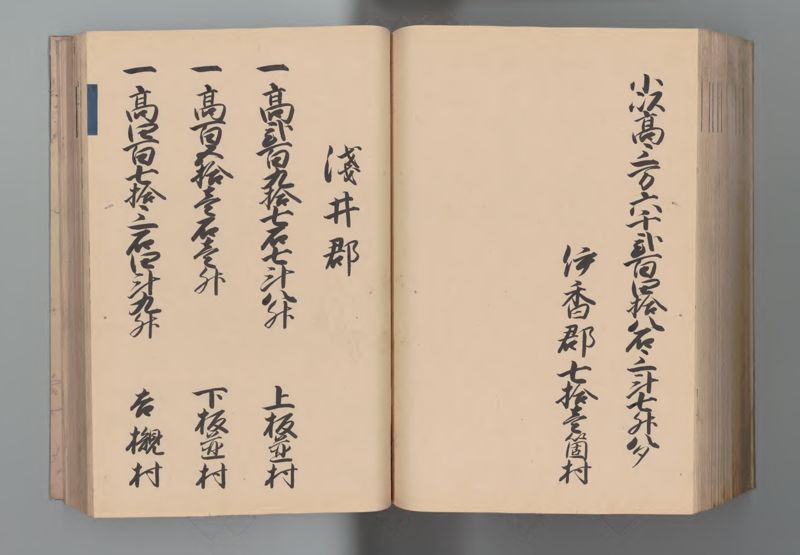 小以高三万六千弐百四拾八石三斗七升八夕
伊香郡七拾壱箇村
淺井郡
一高弐百九拾七石七斗八升 上板並村
一高百六拾壱石壱升 下板並村
一高四百七拾三石四斗九升 吉槻村